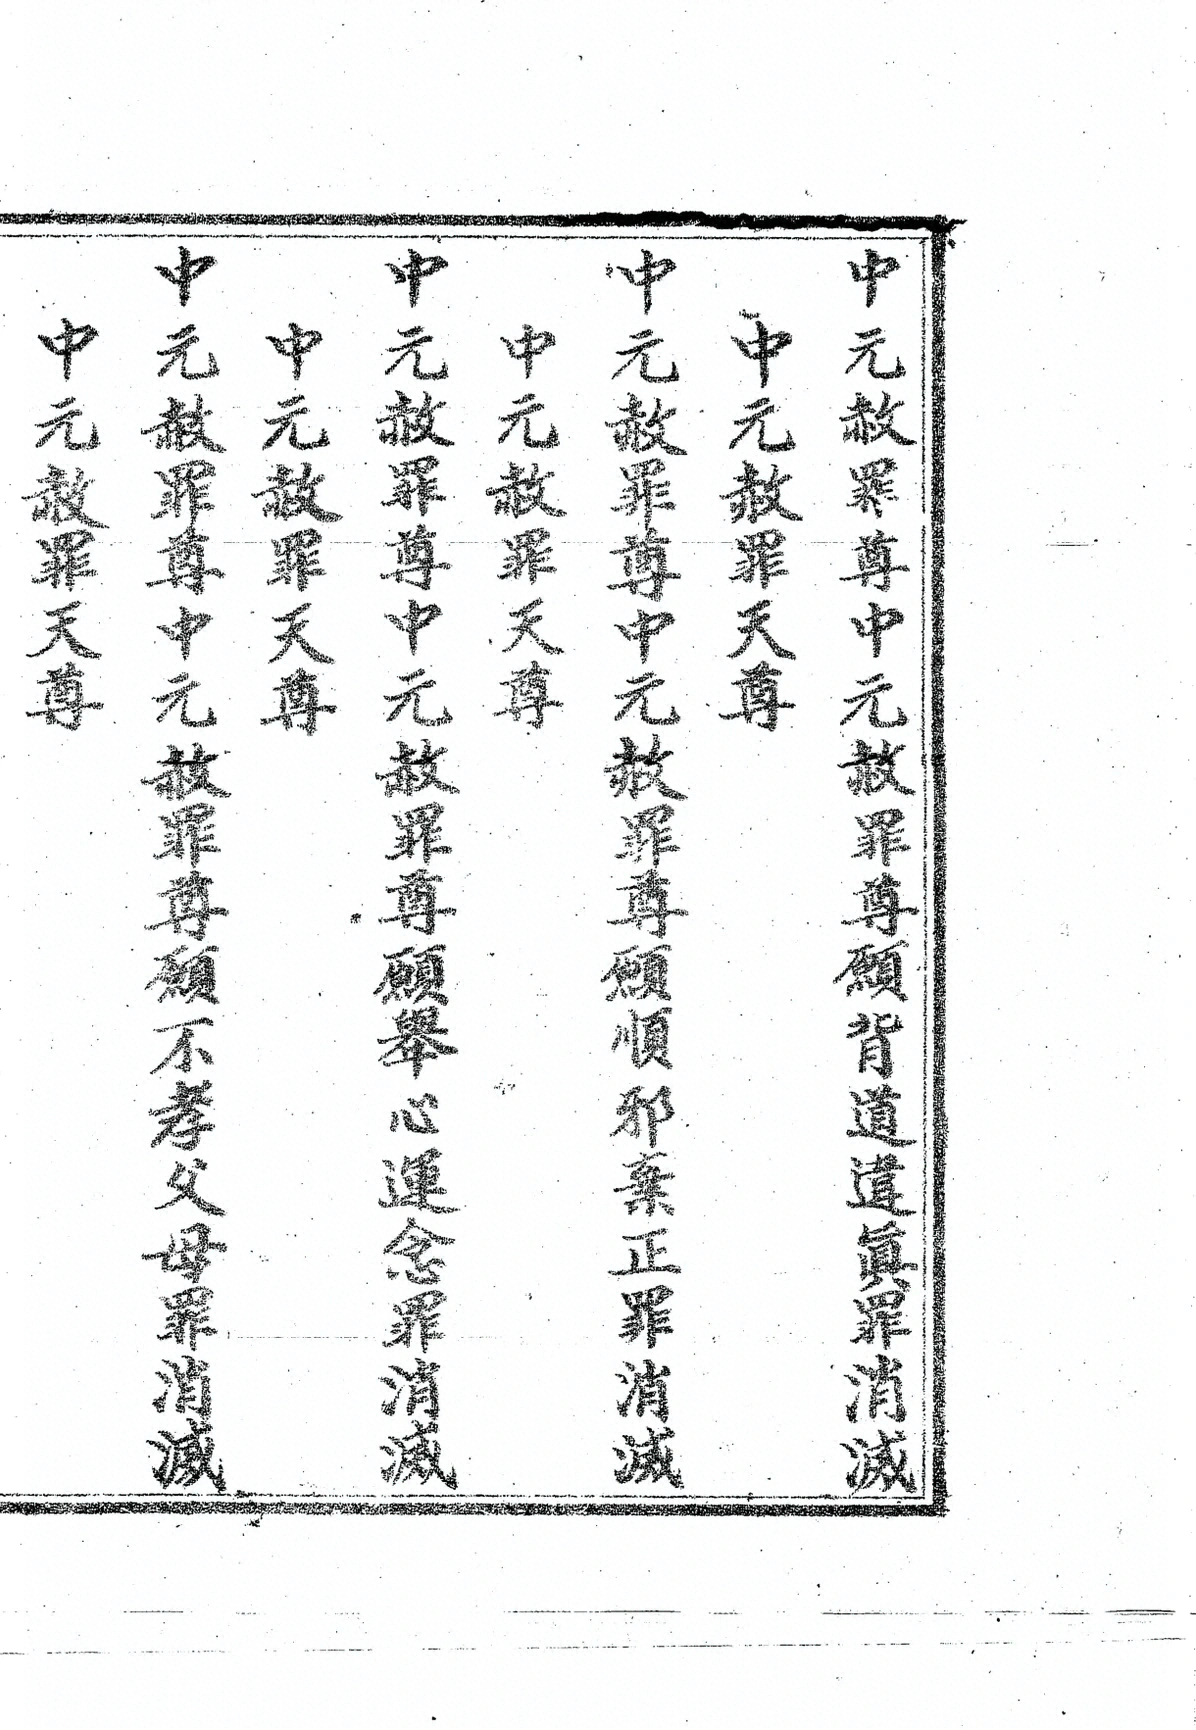 中元赦罪尊中元赦罪尊願背道違眞罪消滅
中元赦罪天尊
中元赦罪尊中元赦罪尊願順邪棄正罪消滅
中元赦罪天尊
中元赦罪尊中元赦罪尊願舉心運念罪消滅
中元赦罪天尊
中元赦罪尊中元赦罪尊願不孝父母罪消滅
中元赦罪天尊